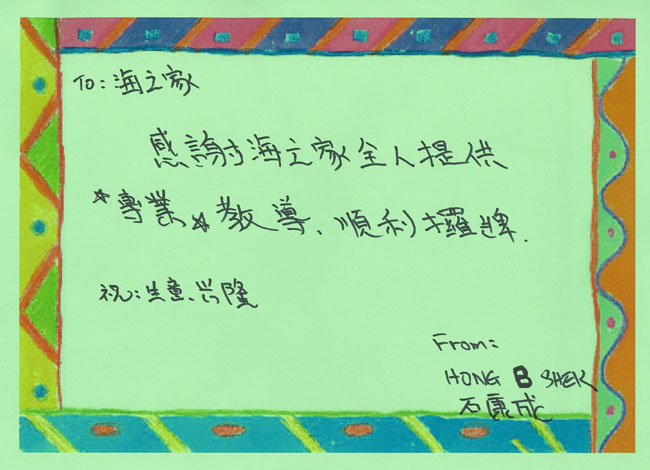 To: 海之家
感謝海之家全人提供
*專業* 教導、順利攞牌.
祝: 生意、兴隆
From:
HONG B SHEK
石康成